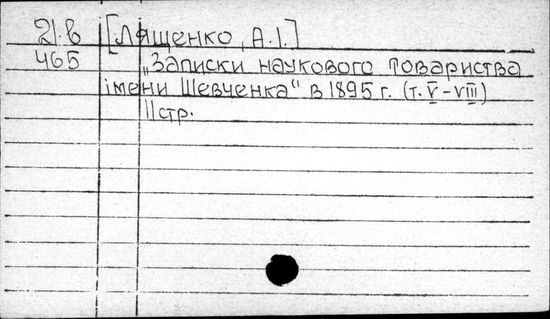 21.в [Лященко, А.І.]
465 „Записки наукового товариства
імени Шевченка" в 1895 г. (т. V-VIII)
11 стр.